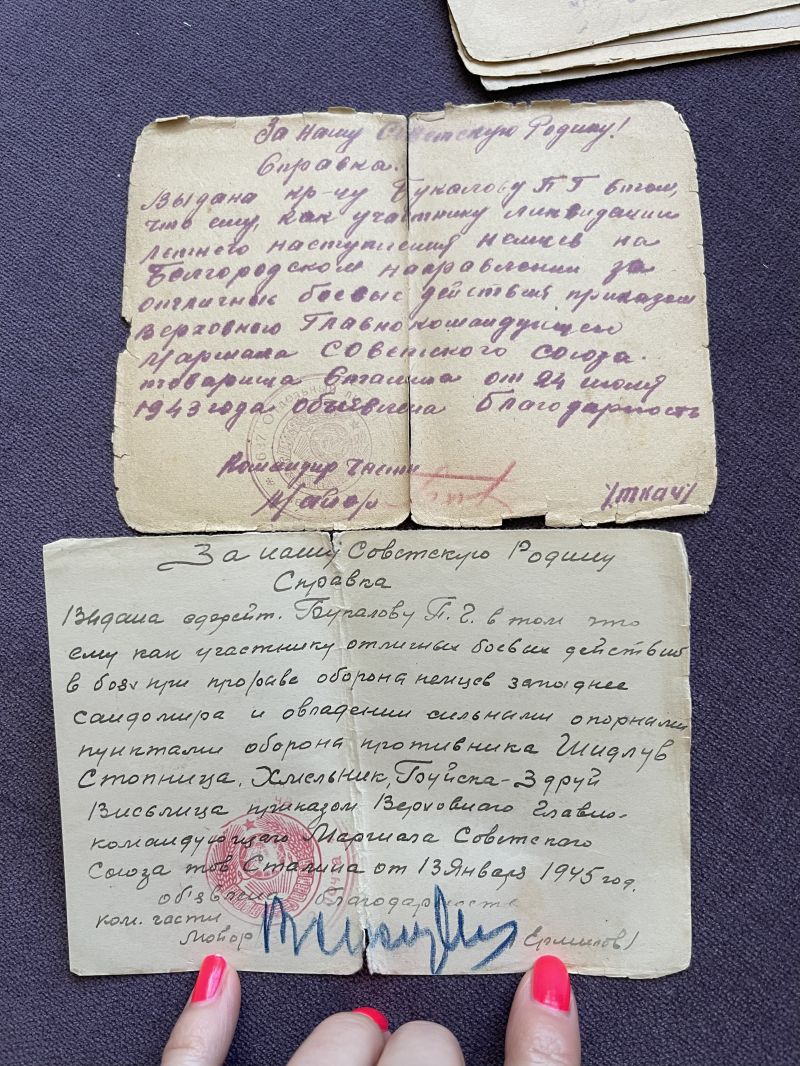 За нашу Советскую Родину!
Справка.
Выдана кр-цу Букалову П Г в том,
что ему, как участнику ликвидации
летнего наступления немцев на
Белгородском направлении за
отличные боевые действия приказом
Верховного Главнокомандующего
Маршала Советского Союза
товарища Сталина от 24 июля
1943 года объявлена благодарность
Командир части
Майор
/Ткач/
За нашу Советскую Родину
Справка
Выдана ефрейт. Букалову П. Г. в том что
ему как участнику отличных боевых действий
в боях при прорыве оборона немцев западнее
сандомира и овладении сильными опорными
пунктами оборона противника Шидлув
Стопница, Хмельник, Буйска-Здруй
Висьлица приказом Верховного Главно-
командующего Маршала Советского
Союза тов Сталина от 13 Января 1945 год.
объявлена благодарность
ком. части
Майор
Ермилов)